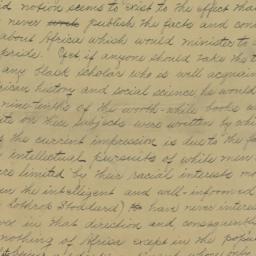 d notion seems to exist to the effect that
never publish the facts and con
about Africa which would minister to
pride. Yet if anyone should take the t
any black scholar who is well acquain
rican history and social science he would
nine tenths of the worth-while books a
on these subjects were written by whi
the current impression is due to the fa
intellectual pursuits of white men
re limited by their racial interests mo
en the intelligent and well-informed
Lothrop Stoddard) have never interes
ves in that direction and consequently
nothing of Africa except in the popu